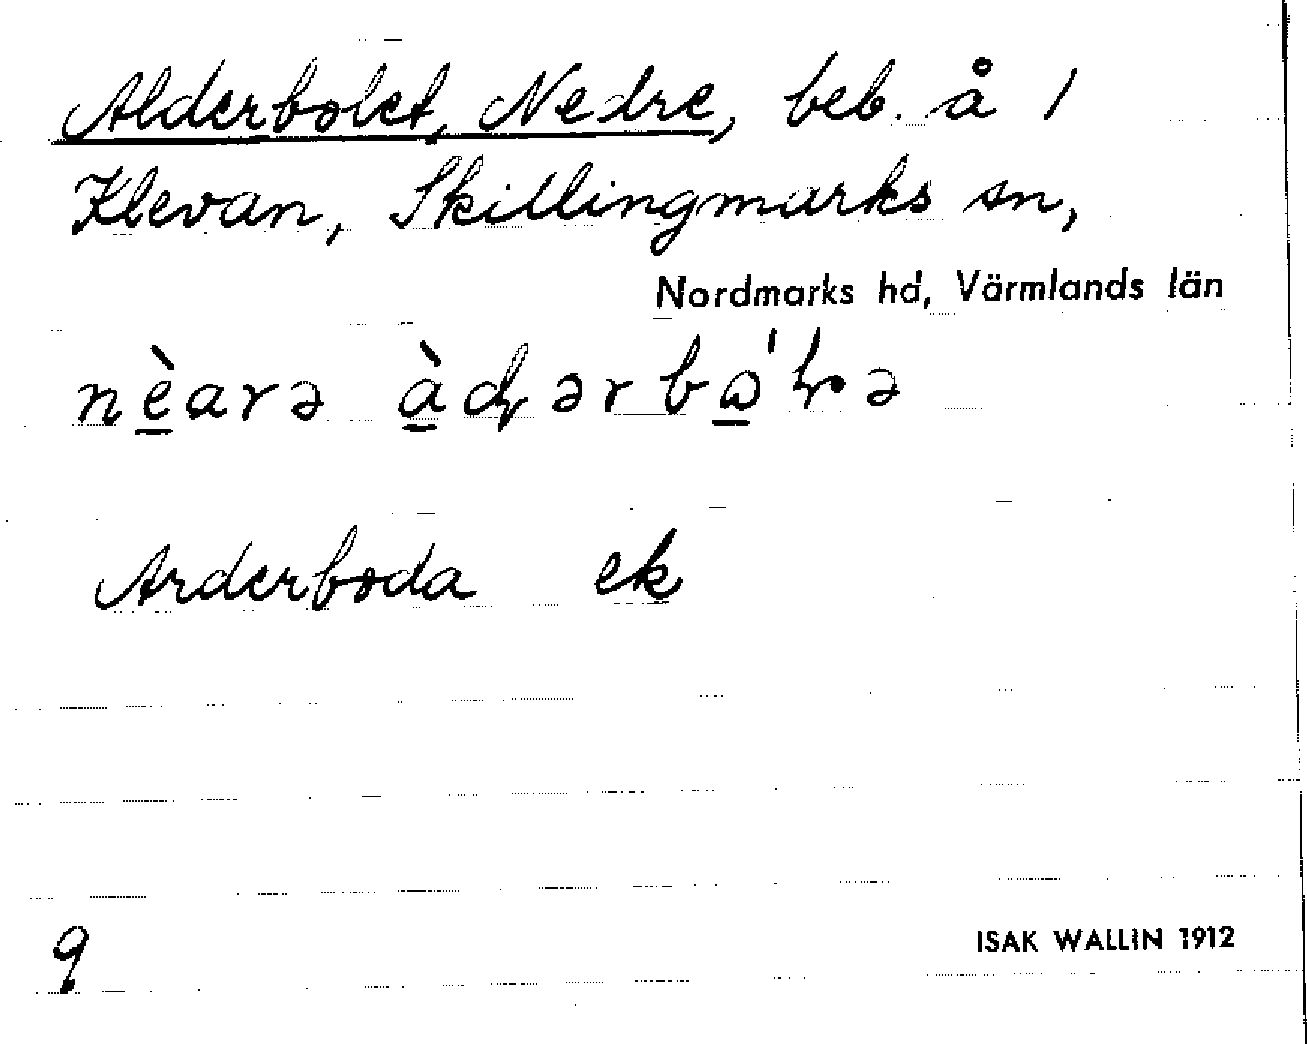 Alderbolet, Nedre, beb. å 1
Klevan, Skillingmarks sn,
Nordmarks hd, Värmlands län
Arderboda ek
9
ISAK WALLIN 1912